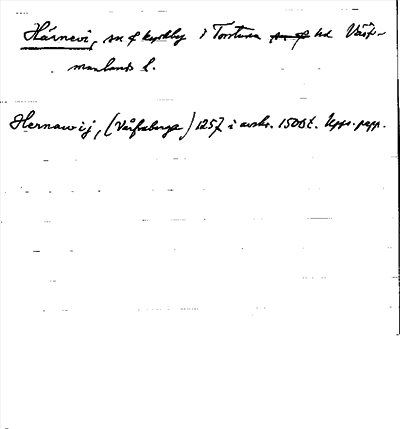 Härnevi, sn & kyrkby i Torstuna hd Väst-
manlands l.
Hernawij, (Våfraberga) 1257 i avskr. 1500t. Upps. papp.